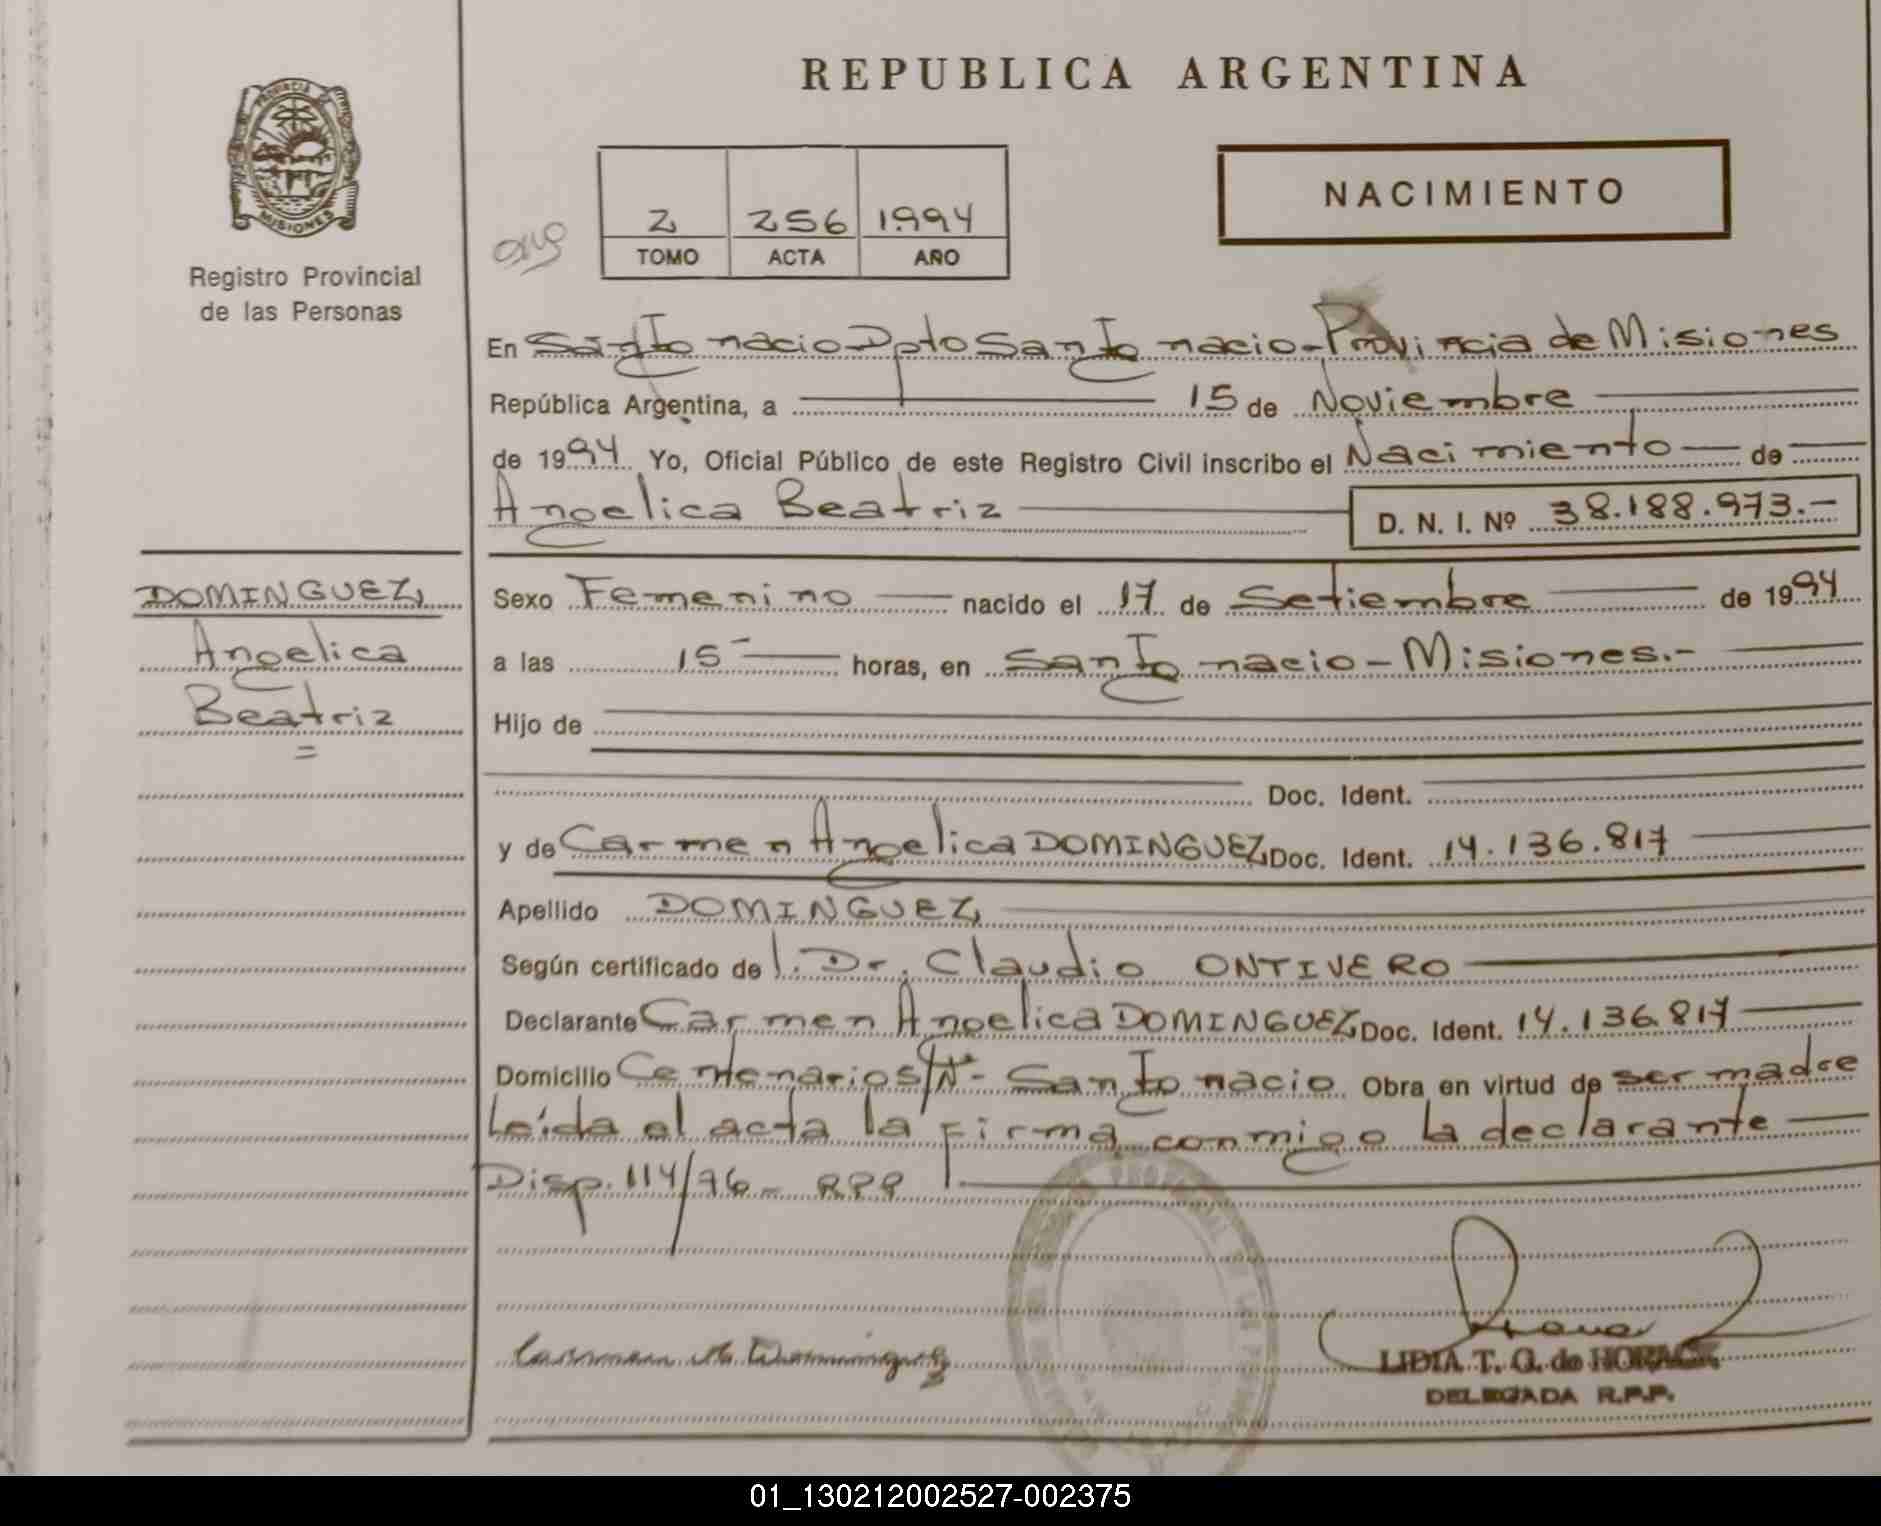 REPUBLICA ARGENTINA
PROVINCIA DE
MISIONES
Registro Provincial
de las Personas
2 256 1994
TOMO ACTA AÑO
NACIMIENTO
En San Ignacio Dpto San Ignacio - Provincia de Misiones
República Argentina, a 15 de Noviembre
de 1994 Yo, Oficial Público de este Registro Civil inscribo el Nacimiento de
Angelica Beatriz D. N. I. Nº 38.188.973.-
DOMINGUEZ,
Angelica
Beatriz
Sexo Femenino nacido el 17 de Setiembre de 1994
a las 15 horas, en San Ignacio - Misiones.-
Hijo de
Doc. Ident.
y de Carmen Angelica DOMINGUEZ, Doc. Ident. 14.136.817
Apellido DOMINGUEZ,
Según certificado de l. Dr. Claudio ONTIVERO
Declarante Carmen Angelica DOMINGUEZ, Doc. Ident. 14.136.817
Domicilio Centenario S/Nº - San Ignacio Obra en virtud de ser madre
Leída el acta la firma conmigo la declarante
Disp. 114/76 - RPP
Carmen A. Dominguez
LIDIA T. G. de HORACK
DELEGADA R.P.P.
01_130212002527-002375